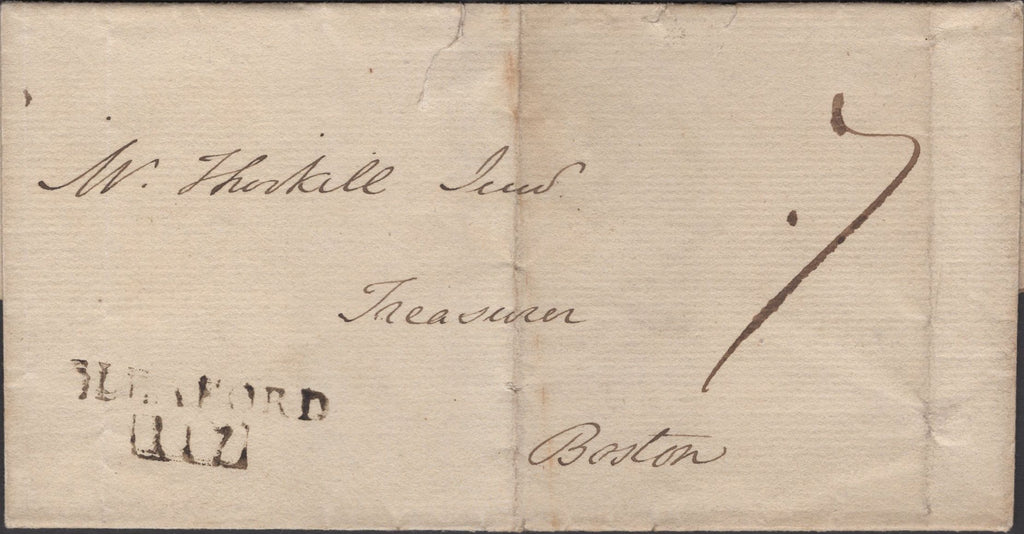 Mr. Thorkill Junr.
7
Treasurer
SLEAFORD
117
Boston